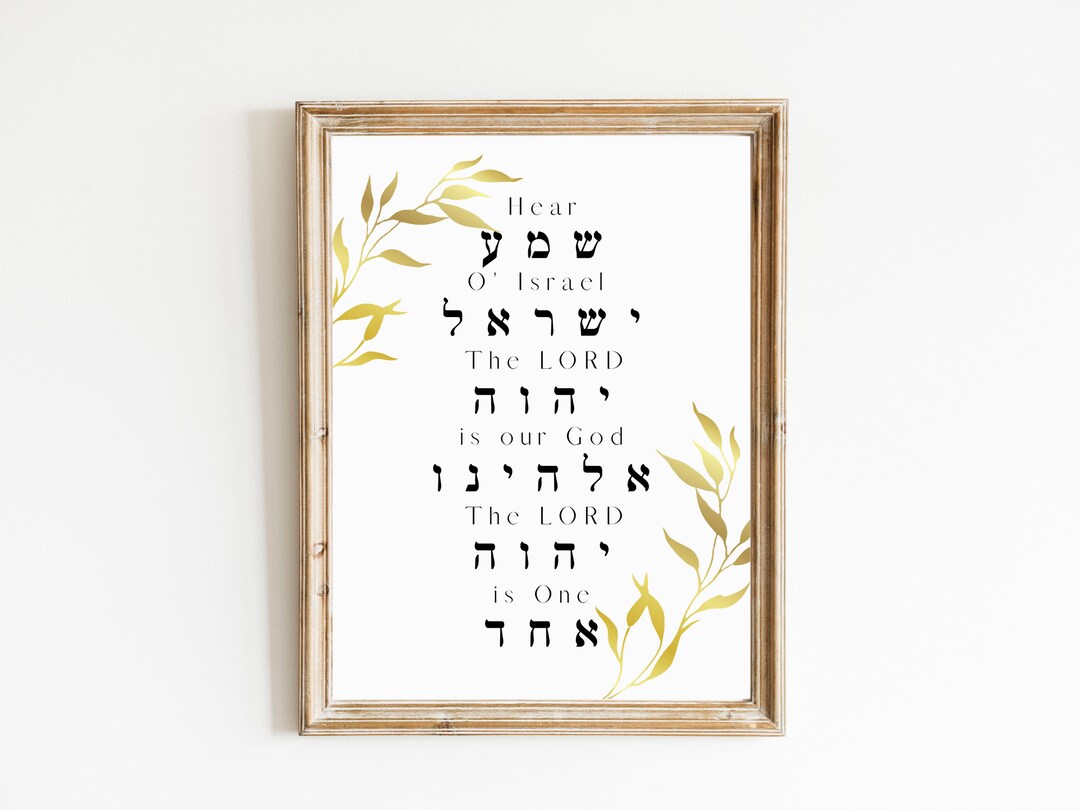 Hear
שמע
O' Israel
ישראל
The LORD
יהוה
is our God
אלהינו
The LORD
יהוה
is One
אחד